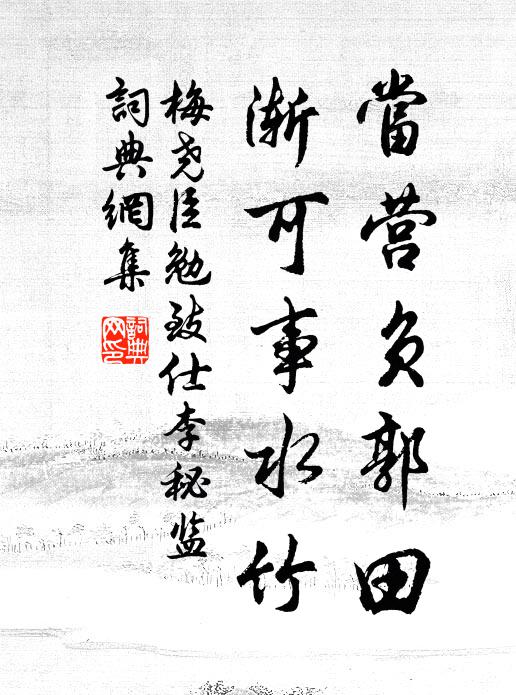 當营负郭田
渐可事水竹
梅尧臣勉致仕李秘监
詞典網集
詞典
网印